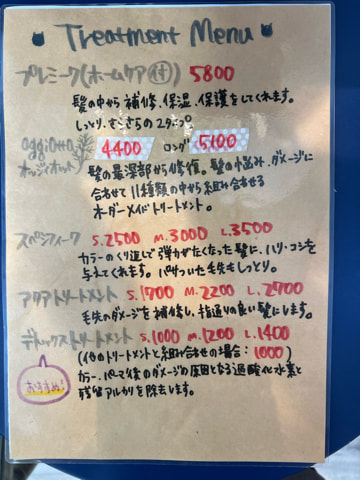 Treatment Menu
プレミーク(ホームケア付) 5800
髪の中から補修、保湿、保護をしてくれます。
しっとり、さらさらの2タイプ。
oggiotto 4400 ロング 5100
オッジィオット 髪の最深部から修復。髪の悩み、ダメージに
合わせて11種類の中から組み合わせる
オーダーメイドトリートメント。
スペシフィーク S.2500 M.3000 L.3500
カラーのくり返しで弾力がなくなった髪に、ハリ・コシを
与えてくれます。パサついた毛先もしっとり。
アクアトリートメント S.1700 M.2200 L.2700
毛先のダメージを補修し、指通りの良い髪にします。
デトックストリートメント S.1000 M.1200 L.1400
(他のトリートメントと組み合せの場合:1000)
おすすめ! カラー、パーマ後のダメージの原因となる過酸化水素と
残留アルカリを除去します。